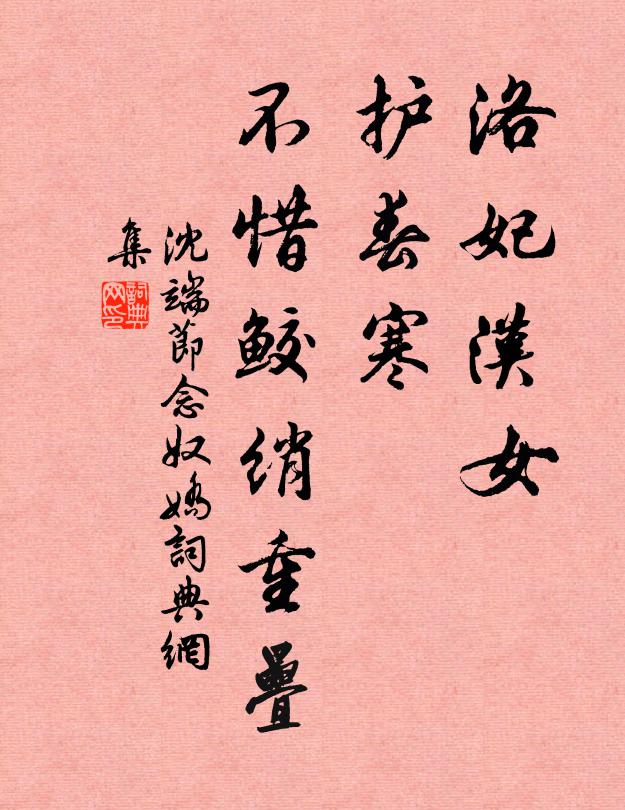 洛妃漢女
护春寒
不惜鲛绡重疊
沈端節念奴嬌詞典網
集
詞典網印